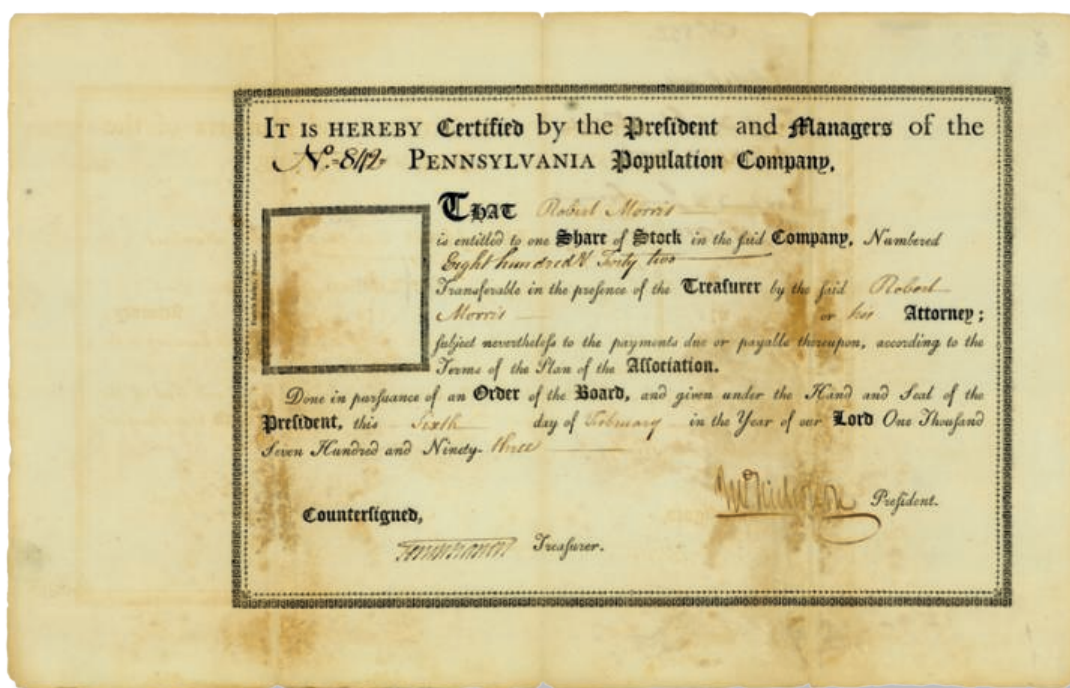 IT IS HEREBY Certified by the President and Managers of the
No. 842 PENNSYLVANIA Population Company,
THAT Robert Morris
is entitled to one Share of Stock in the ſaid Company, Numbered
Eight hundred & Forty two
Tranſferable in the preſence of the Treaſurer by the ſaid Robert
Morris or his Attorney;
ſubject nevertheleſs to the payments due or payable thereupon, according to the
Terms of the Plan of the Aſſociation.
Done in purſuance of an Order of the Board, and given under the Hand and Seal of the
Preſident, this Sixth day of February in the Year of our Lord One Thouſand
Seven Hundred and Ninety-three
Jno Nicholson Preſident.
Counterſigned,
Treaſurer.